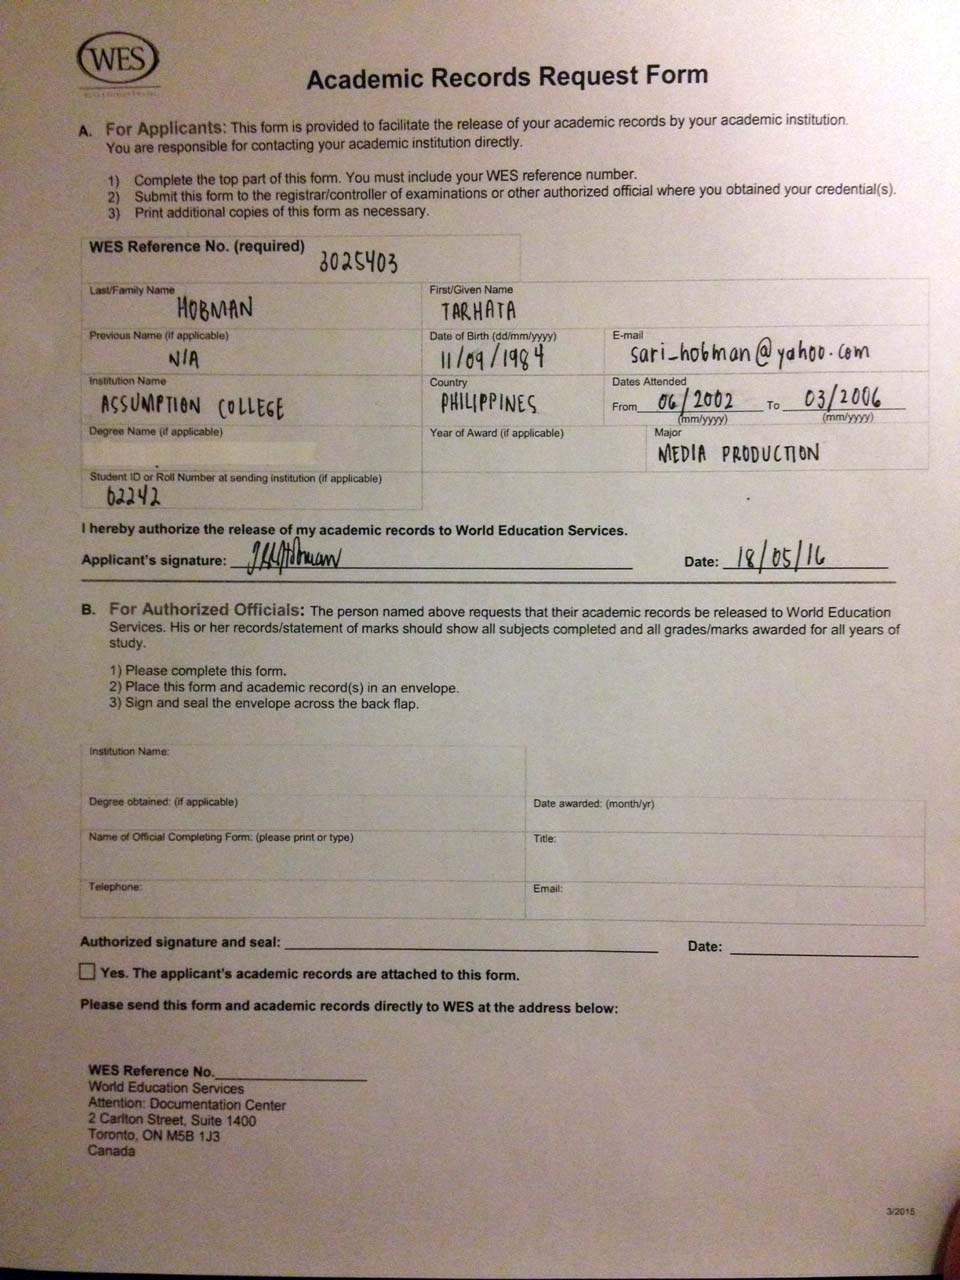 WES
Academic Records Request Form
A. For Applicants: This form is provided to facilitate the release of your academic records by your academic institution.
You are responsible for contacting your academic institution directly.
1) Complete the top part of this form. You must include your WES reference number.
2) Submit this form to the registrar/controller of examinations or other authorized official where you obtained your credential(s).
3) Print additional copies of this form as necessary.
WES Reference No. (required) 3025403
Last/Family Name HOBMAN First/Given Name TARHATA
Previous Name (if applicable) N/A Date of Birth (dd/mm/yyyy) 11/09/1984 E-mail sari_hobman@yahoo.com
Institution Name ASSUMPTION COLLEGE Country PHILIPPINES Dates Attended From 06/2002 (mm/yyyy) To 03/2006 (mm/yyyy)
Degree Name (if applicable) Year of Award (if applicable) Major MEDIA PRODUCTION
Student ID or Roll Number at sending institution (if applicable)
02242
I hereby authorize the release of my academic records to World Education Services.
Applicant's signature: Date: 18/05/16
B. For Authorized Officials: The person named above requests that their academic records be released to World Education
Services. His or her records/statement of marks should show all subjects completed and all grades/marks awarded for all years of
study.
1) Please complete this form.
2) Place this form and academic record(s) in an envelope.
3) Sign and seal the envelope across the back flap.
Institution Name:
Degree obtained: (if applicable) Date awarded: (month/yr)
Name of Official Completing Form: (please print or type) Title:
Telephone: Email:
Authorized signature and seal: Date:
Yes. The applicant's academic records are attached to this form.
Please send this form and academic records directly to WES at the address below:
WES Reference No.
World Education Services
Attention: Documentation Center
2 Carlton Street, Suite 1400
Toronto, ON M5B 1J3
Canada
3/2015